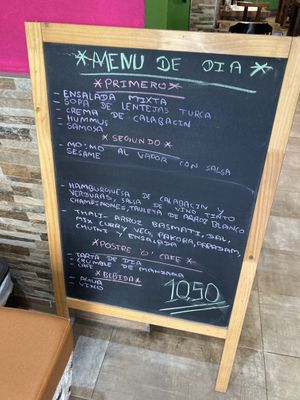 *MENU DE DIA*
*PRIMERO*
- ENSALADA MIXTA
- SOPA DE LENTEJAS TURCA
- CREMA DE CALABACIN
- HUMMUS
- SAMOSA
*SEGUNDO*
- MO:MO AL VAPOR CON SALSA
SESAME
- HAMBURGUESA DE CALABACIN Y
VERDURAS, SALSA DE VINO TINTO
CHAMPIÑONES, DE ARROZ BLANCO
- THALI- ARROZ BASMATI, DAL,
MIX CURRY VEG, PAKORA, PAPADAM,
CHUTNY Y ENSALADA
*POSTRE 'O' CAFE*
- TARTA DE DIA
- CRUMBLE DE MANZANA
- CAFE
*BEBIDA*
- AGUA
- VINO
10,50